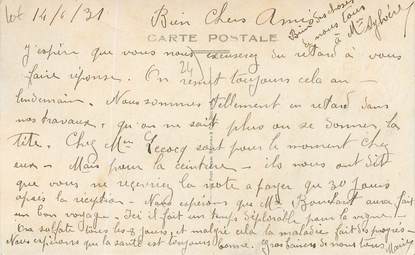 le 14/6/31 Bien Chers Amis
CARTE POSTALE
Bien des choses
de nous tous
à Mme Sylvère
J'espère que vous nous excuserez du retard à vous
faire réponse. On remet toujours cela au
lendemain. Nous sommes tellement en retard dans
nos travaux, qu'on ne sait plus ou se donner la
tête. Chez Mme Lecocq sont pour le moment chez
eux. Mais pour la ceinture ils nous ont dit
que vous ne recevrez la note a payer qu 30 jours
après la réception. Nous espérons que Mme aura fait
un bon voyage. Ici il fait un temps déplorable pour la vigne
On sulfate tous les 8 jours, et malgré cela la maladie fait des progrès.
Nous espérons que la santé est toujours bonne. Gros baisers de nous tous